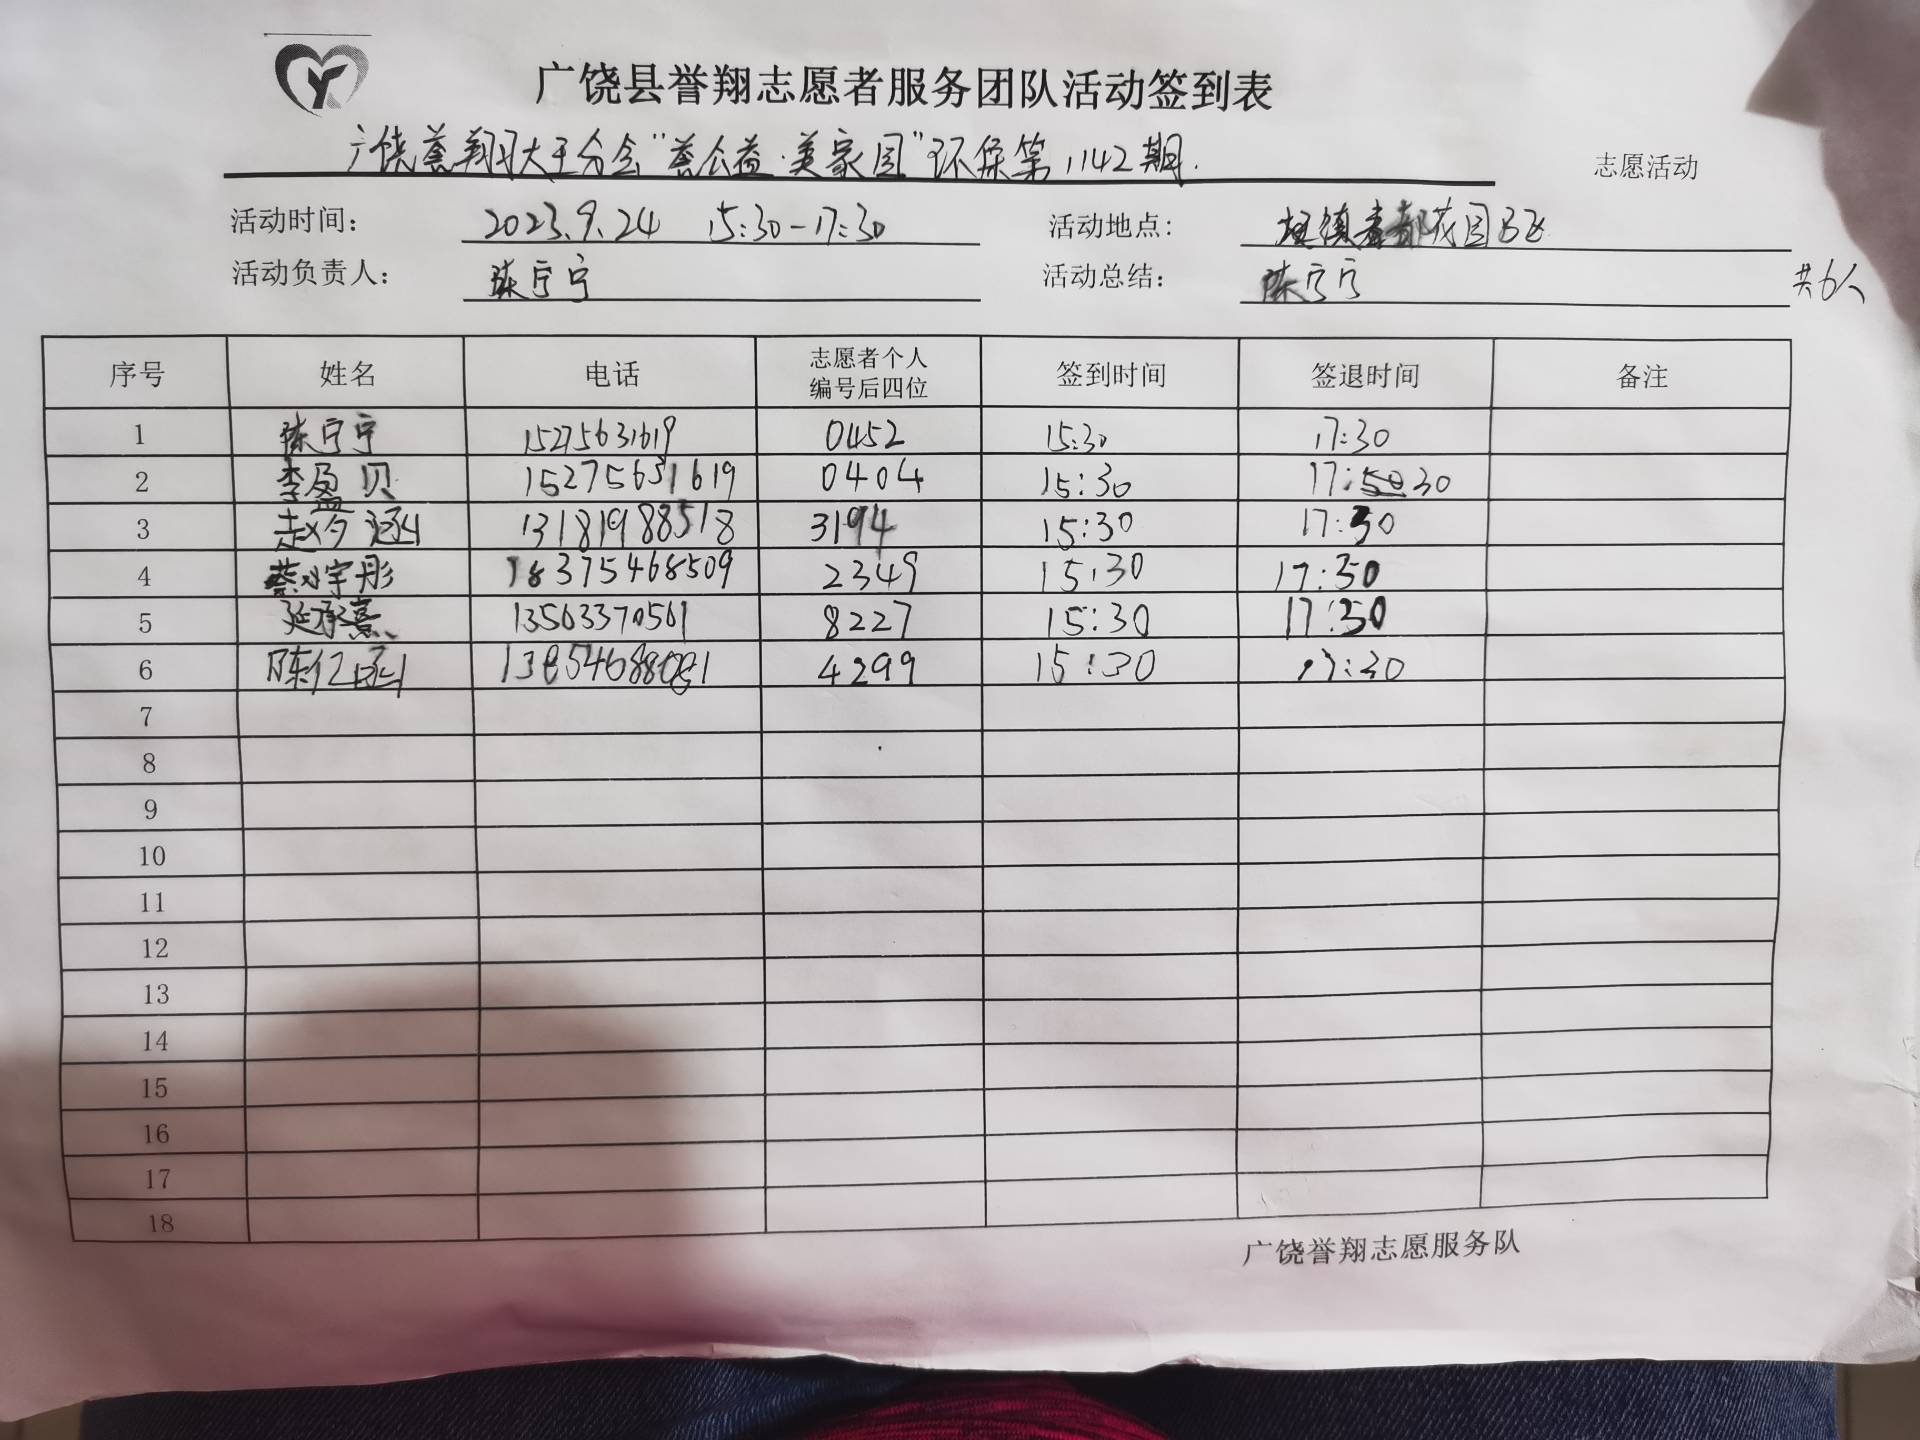 广饶县誉翔志愿者服务团队活动签到表
广饶誉翔大王分会“誉公益·美家园”环保第1142期. 志愿活动
活动时间: 2023.9.24 15:30-17:30 活动地点: 花园
活动负责人: 陈宁宁 活动总结: 陈宁宁 共6人
序号 姓名 电话 志愿者个人编号后四位 签到时间 签退时间 备注
1 陈宁宁 15275631619 0452 15:30 17:30
2 李盈贝 15275631619 0404 15:30 17:30
3 赵夕涵 13181988518 3194 15:30 17:30
4 宇彤 18375468509 2349 15:30 17:30
5 延承熹 13563370561 8227 15:30 17:30
6 陈亿涵 4299 15:30 17:30
7
8
9
10
11
12
13
14
15
16
17
18
广饶誉翔志愿服务队